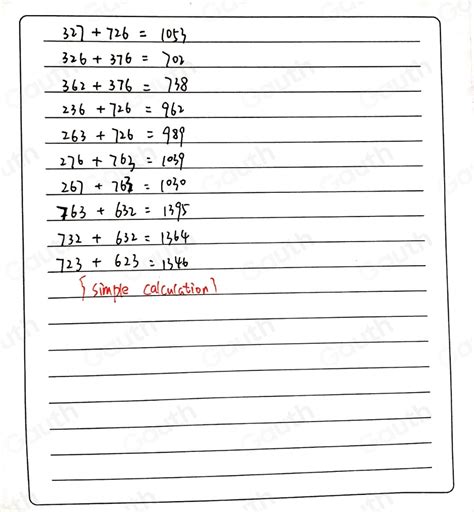 327 + 726 = 1053
326 + 376 = 702
362 + 376 = 738
236 + 726 = 962
263 + 726 = 989
276 + 763 = 1039
267 + 763 = 1030
763 + 632 = 1395
732 + 632 = 1364
723 + 623 = 1346
[simple calculation]